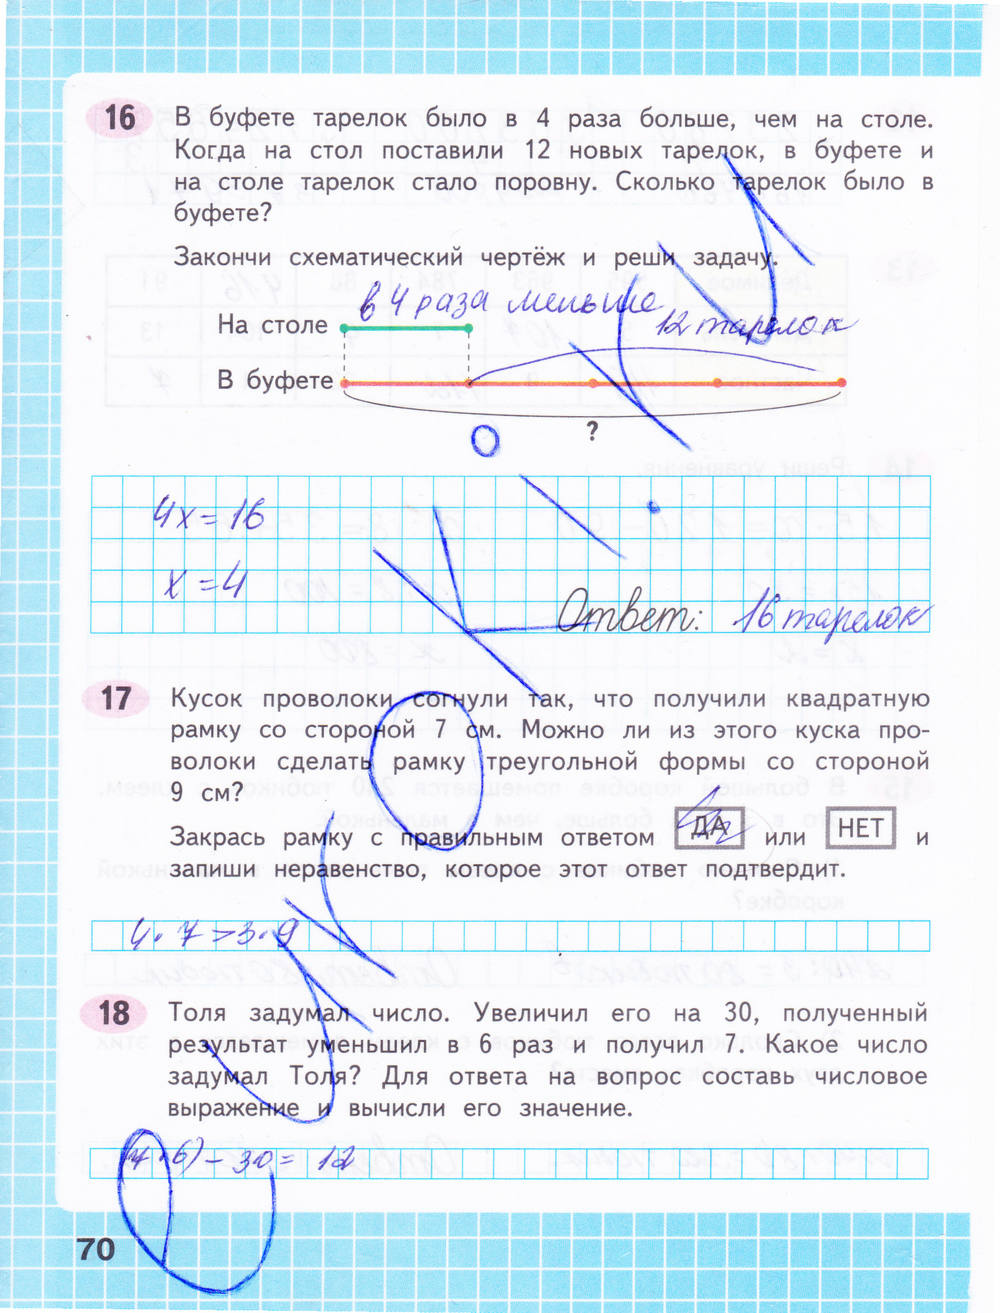 16 В буфете тарелок было в 4 раза больше, чем на столе.
Когда на стол поставили 12 новых тарелок, в буфете и
на столе тарелок стало поровну. Сколько тарелок было в
буфете?
Закончи схематический чертёж и реши задачу.
в 4 раза меньше
На столе
12 тарелок
В буфете
?
4x = 16
x = 4
Ответ: 16 тарелок
17 Кусок проволоки согнули так, что получили квадратную
рамку со стороной 7 см. Можно ли из этого куска про-
волоки сделать рамку треугольной формы со стороной
9 см?
Закрась рамку с правильным ответом ДА или НЕТ и
запиши неравенство, которое этот ответ подтвердит.
4 · 7 > 3 · 9
18 Толя задумал число. Увеличил его на 30, полученный
результат уменьшил в 6 раз и получил 7. Какое число
задумал Толя? Для ответа на вопрос составь числовое
выражение и вычисли его значение.
(7 · 6) - 30 = 12
70